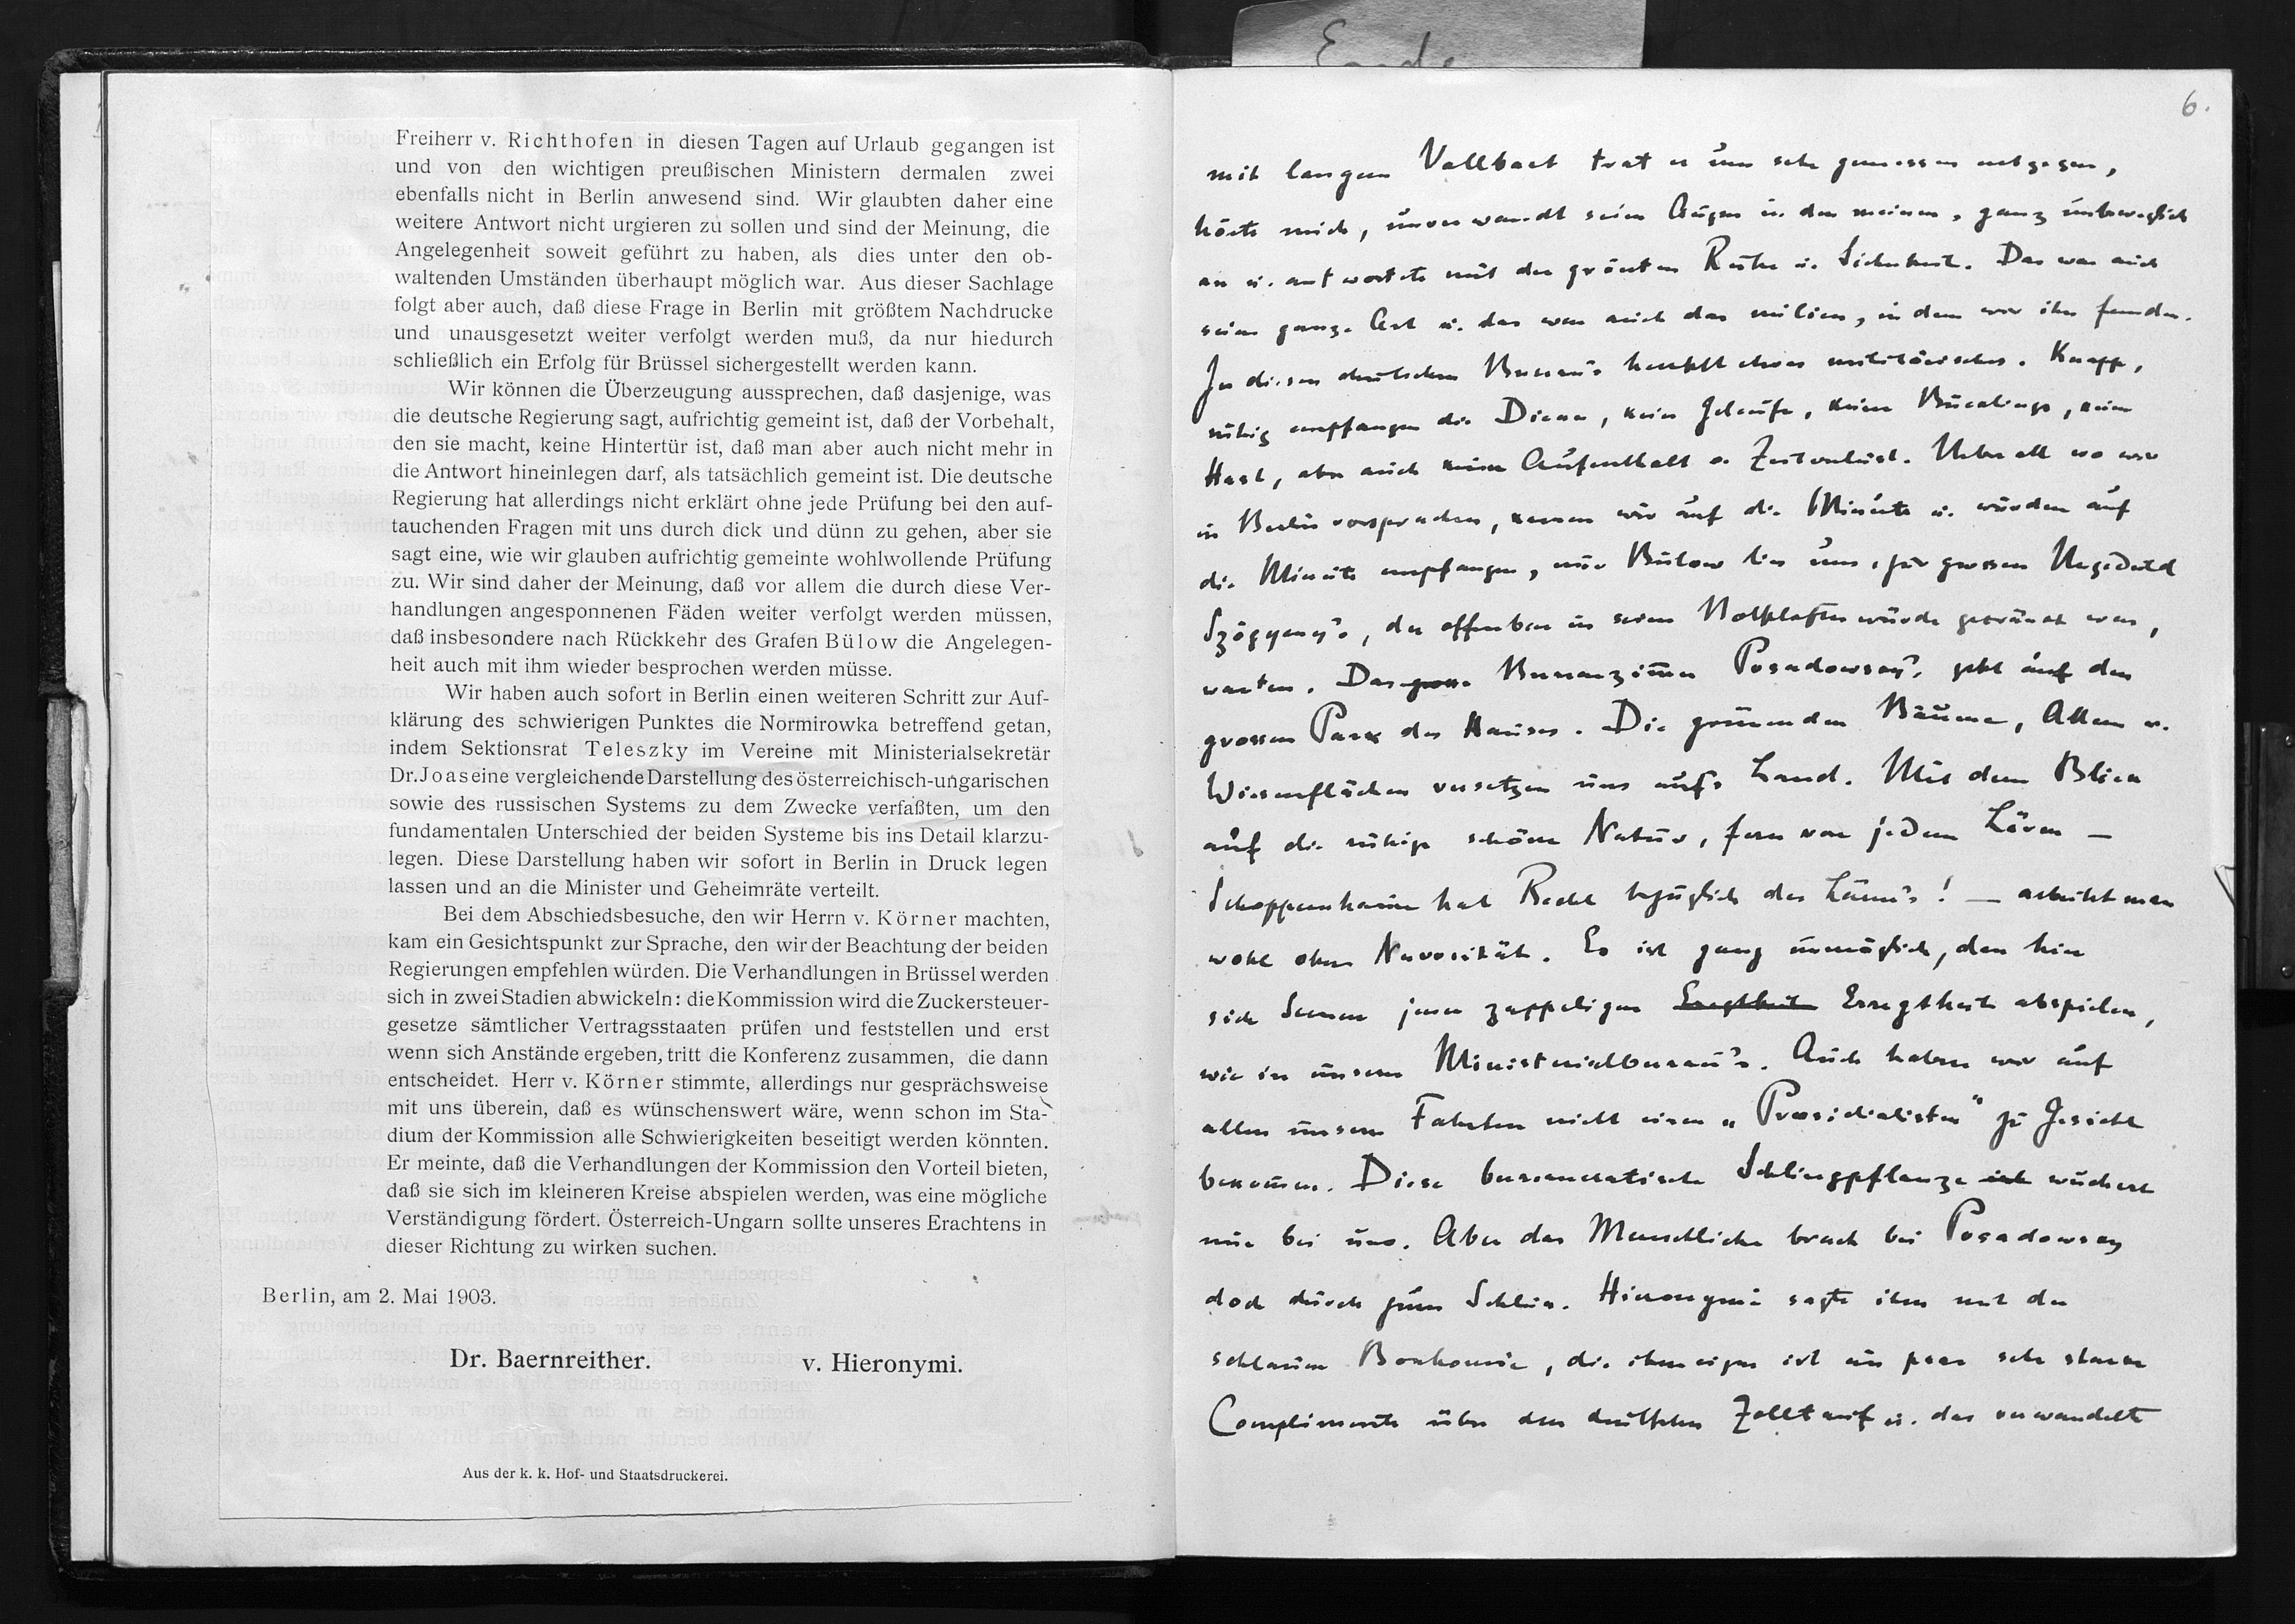 Freiherr v. Richthofen in diesen Tagen auf Urlaub gegangen ist
und von den wichtigen preußischen Ministern dermalen zwei
ebenfalls nicht in Berlin anwesend sind. Wir glaubten daher eine
weitere Antwort nicht urgieren zu sollen und sind der Meinung, die
Angelegenheit soweit geführt zu haben, als dies unter den ob-
waltenden Umständen überhaupt möglich war. Aus dieser Sachlage
folgt aber auch, daß diese Frage in Berlin mit größtem Nachdrucke
und unausgesetzt weiter verfolgt werden muß, da nur hiedurch
schließlich ein Erfolg für Brüssel sichergestellt werden kann.
Wir können die Überzeugung aussprechen, daß dasjenige, was
die deutsche Regierung sagt, aufrichtig gemeint ist, daß der Vorbehalt,
den sie macht, keine Hintertür ist, daß man aber auch nicht mehr in
die Antwort hineinlegen darf, als tatsächlich gemeint ist. Die deutsche
Regierung hat allerdings nicht erklärt ohne jede Prüfung bei den auf-
tauchenden Fragen mit uns durch dick und dünn zu gehen, aber sie
sagt eine, wie wir glauben aufrichtig gemeinte wohlwollende Prüfung
zu. Wir sind daher der Meinung, daß vor allem die durch diese Ver-
handlungen angesponnenen Fäden weiter verfolgt werden müssen,
daß insbesondere nach Rückkehr des Grafen Bülow die Angelegen-
heit auch mit ihm wieder besprochen werden müsse.
Wir haben auch sofort in Berlin einen weiteren Schritt zur Auf-
klärung des schwierigen Punktes die Normirowka betreffend getan,
indem Sektionsrat Teleszky im Vereine mit Ministerialsekretär
Dr. Joas eine vergleichende Darstellung des österreichisch-ungarischen
sowie des russischen Systems zu dem Zwecke verfaßten, um den
fundamentalen Unterschied der beiden Systeme bis ins Detail klarzu-
legen. Diese Darstellung haben wir sofort in Berlin in Druck legen
lassen und an die Minister und Geheimräte verteilt.
Bei dem Abschiedsbesuche, den wir Herrn v. Körner machten,
kam ein Gesichtspunkt zur Sprache, den wir der Beachtung der beiden
Regierungen empfehlen würden. Die Verhandlungen in Brüssel werden
sich in zwei Stadien abwickeln: die Kommission wird die Zuckersteuer-
gesetze sämtlicher Vertragsstaaten prüfen und feststellen und erst
wenn sich Anstände ergeben, tritt die Konferenz zusammen, die dann
entscheidet. Herr v. Körner stimmte, allerdings nur gesprächsweise
mit uns überein, daß es wünschenswert wäre, wenn schon im Sta-
dium der Kommission alle Schwierigkeiten beseitigt werden könnten.
Er meinte, daß die Verhandlungen der Kommission den Vorteil bieten,
daß sie sich im kleineren Kreise abspielen werden, was eine mögliche
Verständigung fördert. Österreich-Ungarn sollte unseres Erachtens in
dieser Richtung zu wirken suchen.
Berlin, am 2. Mai 1903.
Dr. Baernreither. v. Hieronymi.
Aus der k. k. Hof- und Staatsdruckerei.
Ende
6.
mit langem Vollbart trat er uns sehr gemessen entgegen,
hörte mich, unverwandt seine Augen in den meinen, ganz unbeweglich
an u. antwortete mit der grössten Ruhe u. Sicherheit. Das war auch
seine ganze Art u. das war auch das milieu, in dem wir ihn fanden.
In diesen deutschen Bureau's herrscht etwas militärisches. Knapp,
ruhig empfangen die Diener, kein Geläufe, keine Bücklinge, keine
Hast, aber auch kein Aufenthalt o. Zeitverlust. Ueberall wo wir
in Berlin vorsprachen, kamen wir auf die Minute u. wurden auf
die Minute empfangen, nur Bülow lies uns, zur grossen Ungeduld
Szögyeny's, der offenbar in seiner Botschafterwürde gekränkt war,
warten. Das Bureauzimmer Posadowsky's geht auf den
grossen Park des Hauses. Die grünenden Bäume, Alleen u.
Wiesenflächen versetzen uns aufs Land. Mit dem Blick
auf die ruhige schöne Natur, fern von jedem Lärm –
Schoppenhauer hat Recht bezüglich des Lärms! – arbeitet man
wohl ohne Nervosität. Es ist ganz unmöglich, dass hier
sich Scenen jener zappeligen Erregtheit abspielen,
wie in unseren Ministerialbureau's. Auch haben wir auf
allen unseren Fahrten nicht einen „Praesidialisten" zu Gesicht
bekommen. Diese bureaucratische Schlingpflanze wuchert
nur bei uns. Aber das Menschliche brach bei Posadowsky
doch durch zum Schluss. Hieronymi sagte ihm mit der
schlauen Bonhomie, die ihm eigen ist ein paar sehr starke
Complimente über den deutschen Zolltarif u. das verwandelte